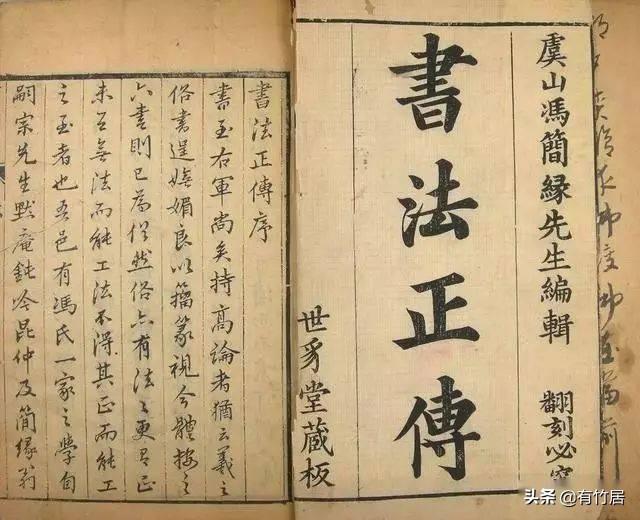 虞山馮簡緣先生編輯 翻刻必
書法正傳
世豸堂藏板
書法正傳序
書至右軍尚矣持高論者猶云羲之
俗書逞媚良以籀篆視今體按之
六書則已為俗然俗亦有法之更有正
未有無法而能工法不得其正而能工
之至者也吾邑有馮氏一家之學自
嗣宗先生默庵鈍吟昆仲及簡緣翁
头条 @有竹居